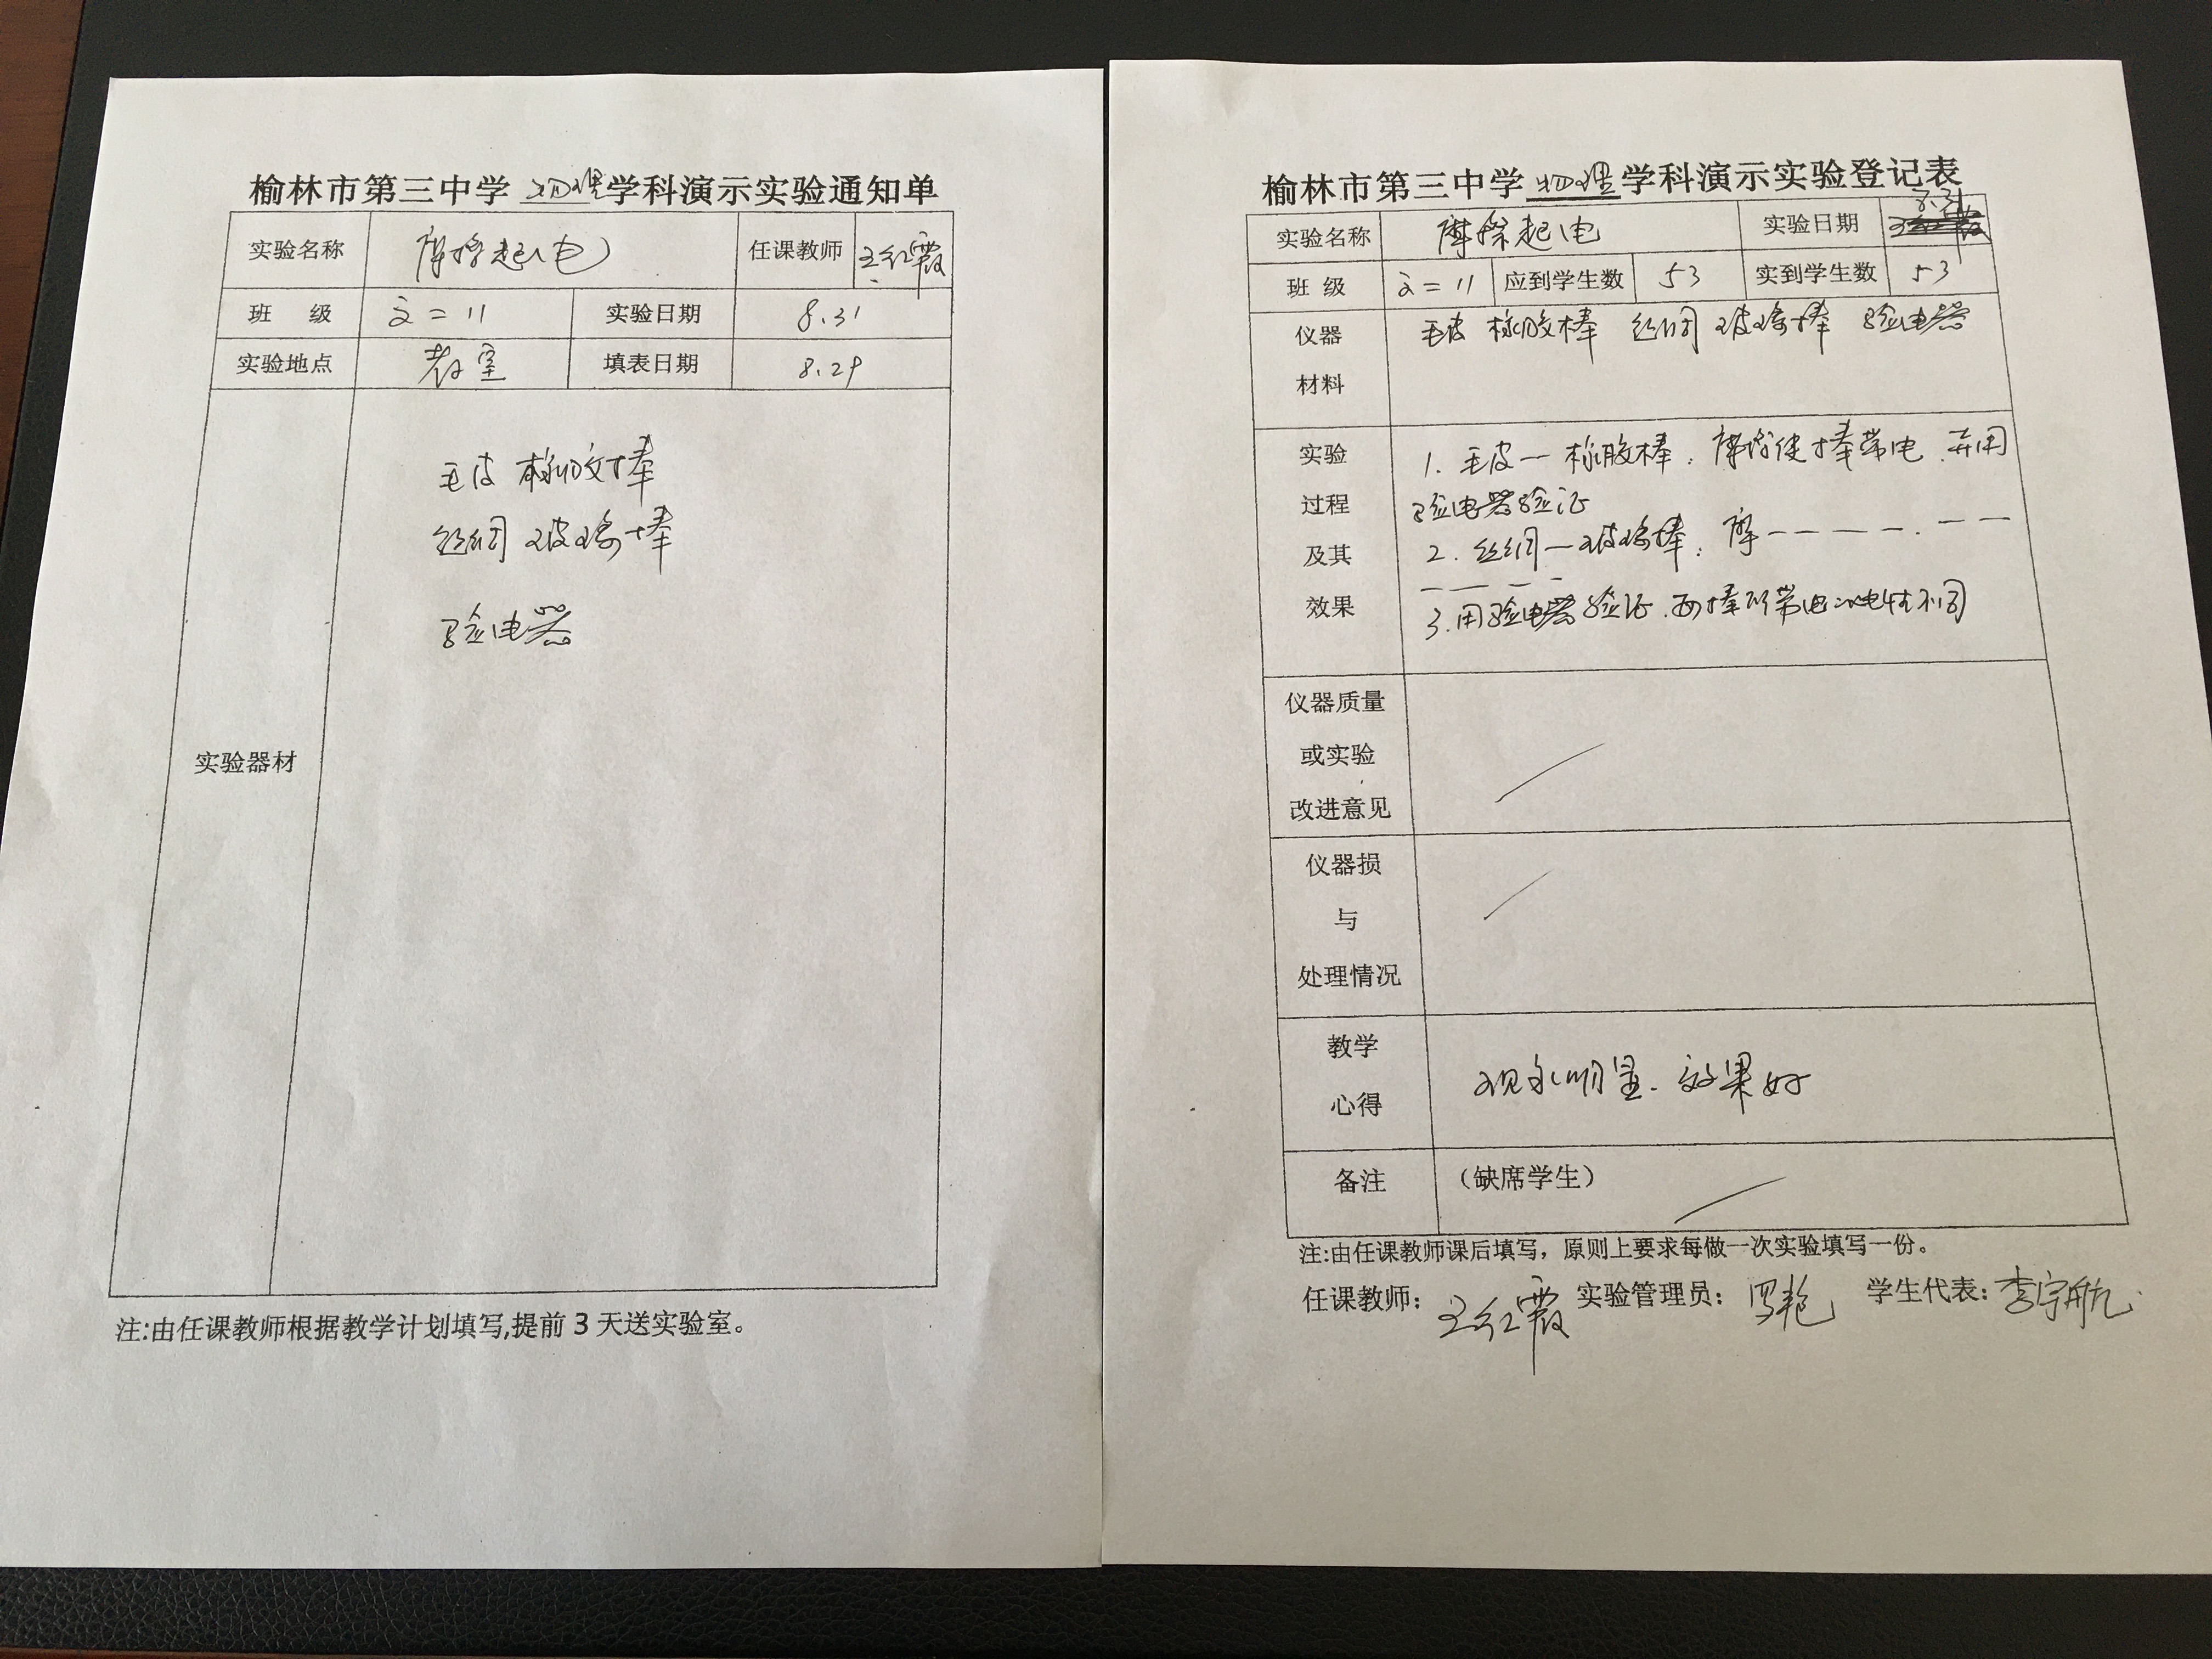 榆林市第三中学 物理 学科演示实验通知单
实验名称 摩擦起电 任课教师 王红霞
班 级 高二11 实验日期 8.31
实验地点 教室 填表日期 8.29
实验器材
毛皮 橡胶棒
丝绸 玻璃棒
验电器
注:由任课教师根据教学计划填写,提前3天送实验室。
榆林市第三中学 物理 学科演示实验登记表
实验名称 摩擦起电 实验日期 8.31
班 级 高二11 应到学生数 53 实到学生数 53
仪器 毛皮 橡胶棒 丝绸 玻璃棒 验电器
材料
实验 1. 毛皮一橡胶棒:摩擦使棒带电.并用
过程 验电器验证
及其 2. 丝绸一玻璃棒:摩————.——
————
效果 3.用验电器验证.两棒所带电的电性不同
仪器质量
或实验
改进意见
仪器损
与
处理情况
教学
心得 现象明显.效果好
备注 (缺席学生)
注:由任课教师课后填写，原则上要求每做一次实验填写一份。
任课教师: 王红霞 实验管理员: 罗艳 学生代表: 李宇航